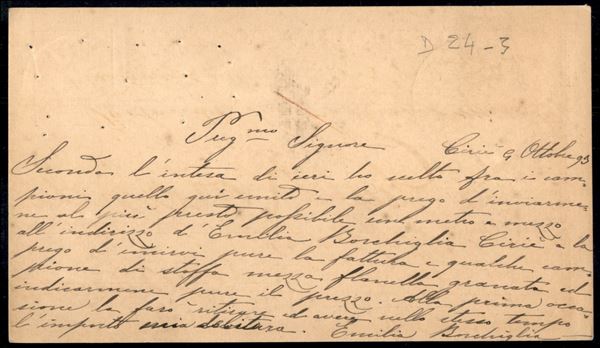 D 24-3
Preg.mo Signore Ciriè 9 Ottobre 93
Secondo l'intesa di ieri ho scelto fra i cam-
pioni quello quì unito e la prego d'inviarme-
ne al più presto possibile un metro e mezzo
all'indirizzo d'Emilia Borchiglia Ciriè e la
prego d'unirvi pure la fattura e qualche cam-
pione di stoffa mezza flanella granata ed
indicarmene pure il prezzo. Alla prima occa-
sione la farò ritirare ed avere nello stesso tempo
l'importo mia debitura. Emilia Borchiglia